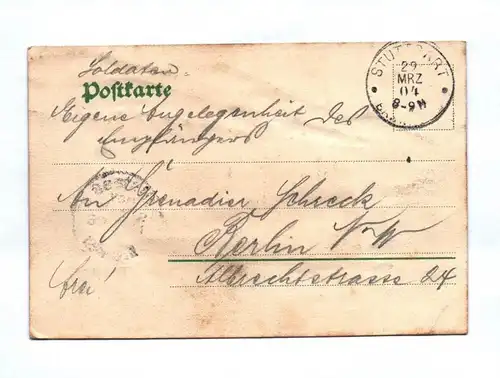 Soldaten-
Postkarte
STUTTGART
29
MRZ
04
8-9N
Eigene Angelegenheit des
Empfängers
An Grenadier Schreck
Berlin
Albrechtstrasse 24
frei